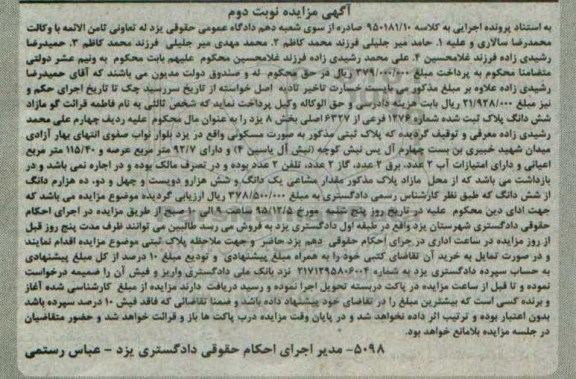 آگهی مزایده نوبت دوم
به استناد پرونده اجرایی به کلاسه ۹۵۰۱۸۱/۱۰ صادره از سوی شعبه دهم دادگاه عمومی حقوقی یزد له تعاونی ثامن الائمه با وکالت
محمدرضا سالاری و علیه ۱. حامد میر جلیلی فرزند محمد کاظم ۲. محمد مهدی میر جلیلی فرزند محمد کاظم ۳. حمیدرضا
رشیدی زاده فرزند غلامحسین ۴. علی محمد رشیدی زاده فرزند غلامحسین محکوم علیهم بابت محکوم به ونیم عشر دولتی
متضامنا محکوم به پرداخت مبلغ ۳۷۹/۰۰۰/۰۰۰ ریال در حق محکوم له و صندوق دولت مدیون می باشند که آقای حمیدرضا
رشیدی زاده علاوه بر مبلغ مذکور می بایست خسارت تاخیر تادیه اصل خواسته از تاریخ سررسید چک تا تاریخ اجرای حکم و
نیز مبلغ ۲۱/۹۲۸/۰۰۰ ریال بابت هزینه دادرسی و حق الوکاله وکیل پرداخت نماید که شخص ثالثی به نام فاطمه قرائت گو مازاد
شش دانگ پلاک ثبت شده شماره ۱۲۷۶ فرعی از ۶۳۲۷ اصلی بخش ۸ یزد را به عنوان مال محکوم علیه ردیف چهارم علی محمد
رشیدی زاده معرفی و توقیف گردیده که پلاک ثبتی مذکور به صورت مسکونی واقع در یزد بلوار نواب صفوی انتهای بهار آزادی
میدان شهید خبیری بن بست چهارم آل یس نبش کوچه (نبش آل یاسین ۴) و دارای ۹۲/۷ متر مربع عرصه و ۱۱۵/۴۰ متر مربع
اعیانی و دارای امتیازات آب ۲ عدد، برق ۲ عدد، گاز ۲ عدد، تلفن ۲ عدد بوده و در تصرف مالک بوده و در اجاره نمی باشد و در
بازداشت می باشد که از محل مازاد پلاک مذکور مقدار مشاعی یک دانگ و شش هزارو دویست و چهل و دو، ده هزارم دانگ
از شش دانگ که طبق نظر کارشناس رسمی دادگستری به مبلغ ۳۷۸/۵۰۰/۰۰۰ ریال ارزیابی گردیده موضوع مزایده می باشد که
جهت ادای دین محکوم علیه در تاریخ روز پنج شنبه مورخ ۹۵/۱۲/۵ ساعت ۹ الی ۱۰ صبح از طریق مزایده در اجرای احکام
حقوقی دادگستری شهرستان یزد واقع در طبقه اول دادگستری یزد به فروش می رسد طالبین می توانند ظرف مدت پنج روز قبل
از روز مزایده در ساعات اداری در جرای احکام حقوقی دهم یزد حاضر و جهت ملاحظه پلاک ثبتی موضوع مزایده اقدام نمایند
و در صورت تمایل به خرید آن تقاضای کتبی خود را به همراه مبلغ پیشنهادی و تودیع مبلغ ۱۰ درصد از کل مبلغ پیشنهادی
به حساب سپرده دادگستری یزد به شماره ۲۱۷۱۲۹۵۸۰۶۰۰۴ نزد بانک ملی دادگستری واریز و فیش آن را ضمیمه درخواست
نموده و تا قبل از ساعت مزایده در پاکت دربسته تحویل اجرا نموده و رسید دریافت دارند مزایده از مبلغ کارشناسی شده آغاز
و برنده کسی است که بیشترین مبلغ را در تقاضای خود پیشنهاد داده باشد و ضمنا تقاضائی که فاقد فیش ۱۰ درصد سپرده باشد
بدون اعتبار بوده و ترتیب اثر داده نخواهد شد و در پایان وقت مزایده درب پاکت ها باز و قرائت خواهد شد و حضور متقاضیان
در جلسه مزایده بلامانع خواهد بود.
۵۰۹۸- مدیر اجرای احکام حقوقی دادگستری یزد - عباس رستمی